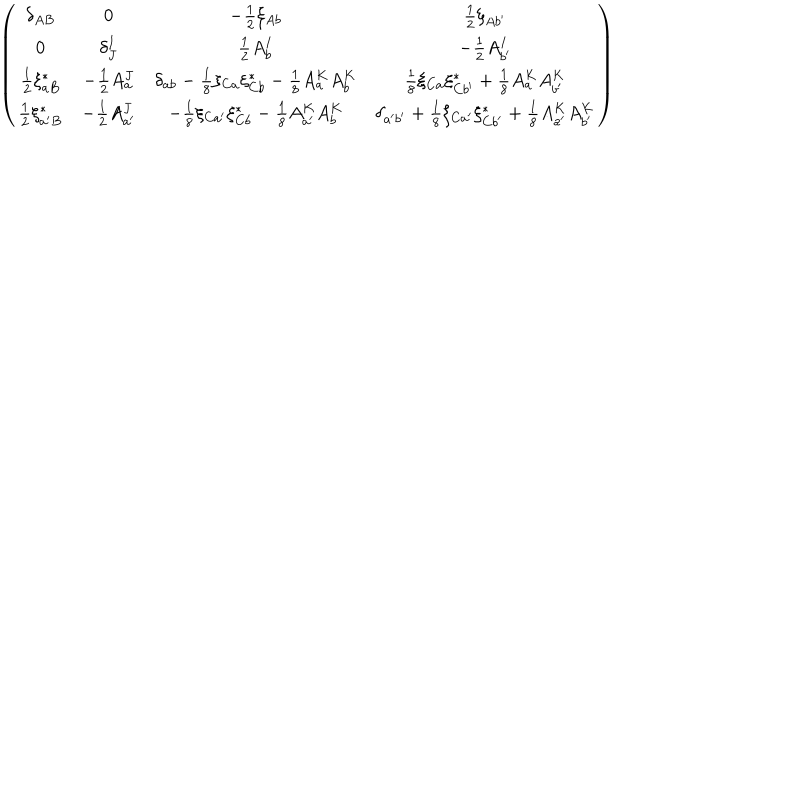 \left( \begin{array}{cccc}
\delta_{AB} & 0 & -\frac{1}{2}\xi_{Ab} & \frac{1}{2}\xi_{Ab'} \\
0 & \delta^I_J & \frac{1}{2}A^I_b & -\frac{1}{2}A^I_{b'} \\
\frac{1}{2}\xi^*_{aB} & -\frac{1}{2}A^J_a & \delta_{ab} - \frac{1}{8}\xi_{Ca}\xi^*_{Cb} - \frac{1}{8}A^K_a A^K_b & \frac{1}{8}\xi_{Ca}\xi^*_{Cb'} + \frac{1}{8}A^K_a A^K_{b'} \\
\frac{1}{2}\xi^*_{a'B} & -\frac{1}{2}A^J_{a'} & -\frac{1}{8}\xi_{Ca'}\xi^*_{Cb} - \frac{1}{8}A^K_{a'} A^K_b & \delta_{a'b'} + \frac{1}{8}\xi_{Ca'}\xi^*_{Cb'} + \frac{1}{8}A^K_{a'} A^K_{b'}
\end{array} \right)